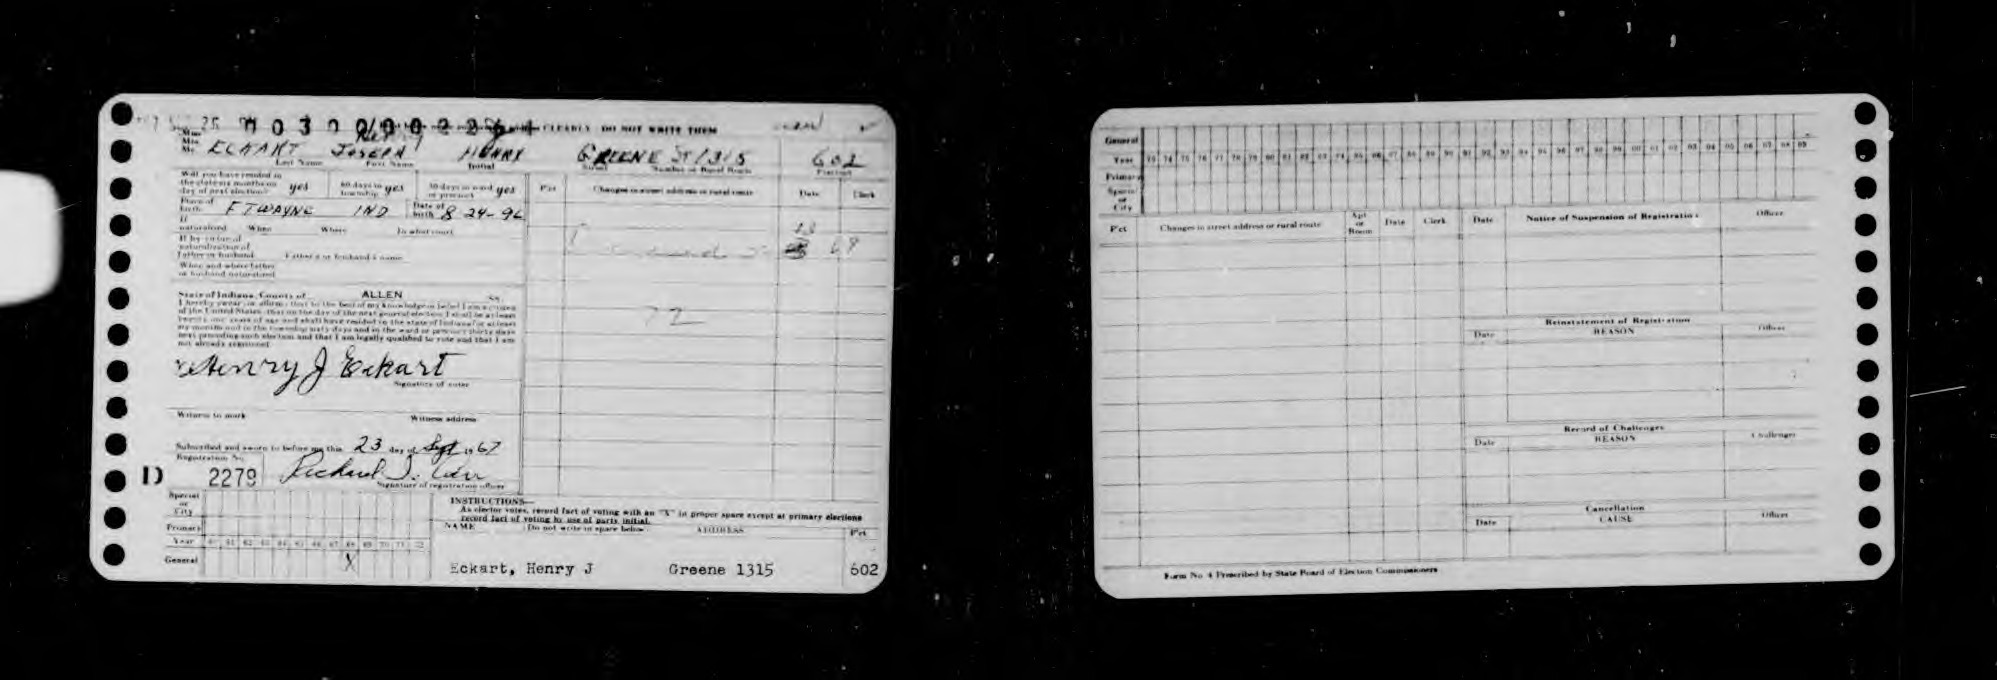 CLEARLY DO NOT WRITE THEM
Miss
Mrs
Mr. ECKART JOSEPH HENRY GREENE ST 1315 602
Last Name First Name Initial Street Number or Rural Route Precinct
Will you have resided in
the state six months on yes 60 days in yes 30 days in ward yes
day of next election? township or precinct
Pct Changes in street address or rural route Date Clerk
Place of
birth FT WAYNE IND Date of birth 8 24-96
If
naturalized When Where In what court
If by virtue of
naturalization of
father or husband Father's or husband's name
When and where father
or husband naturalized
68
72
State of Indiana, County of ALLEN SS.
I hereby swear or affirm that to the best of my knowledge or belief I am a citizen
of the United States, that on the day of the next general election I shall be at least
twenty-one years of age and shall have resided in the state of Indiana for at least
six months and in the township sixty days and in the ward or precinct thirty days
next preceding such election and that I am legally qualified to vote and that I am
not already registered
Henry J Eckart
Signature of voter
Witness to mark Witness address
Subscribed and sworn to before me this 23 day of Sept 1967
Registration No.
D 2279 Richard J.
Signature of registration officer
Special
or
City
Primary
Year 60 61 62 63 64 65 66 67 68 69 70 71 72
General X
INSTRUCTIONS—
As elector votes, record fact of voting with an "X" in proper space except at primary elections
record fact of voting by use of party initial.
NAME (Do not write in space below) ADDRESS Pct
Eckart, Henry J Greene 1315 602
General
Year 73 74 75 76 77 78 79 80 81 82 83 84 85 86 87 88 89 90 91 92 93 94 95 96 97 98 99 00 01 02 03 04 05 06 07 08 09
Primary
Special
or
City
Pct Changes in street address or rural route Apt or Room Date Clerk
Date Notice of Suspension of Registration Officer
Reinstatement of Registration
Date REASON Officer
Record of Challenges
Date REASON Challenger
Cancellation
Date CAUSE Officer
Form No. 4 Prescribed by State Board of Election Commissioners